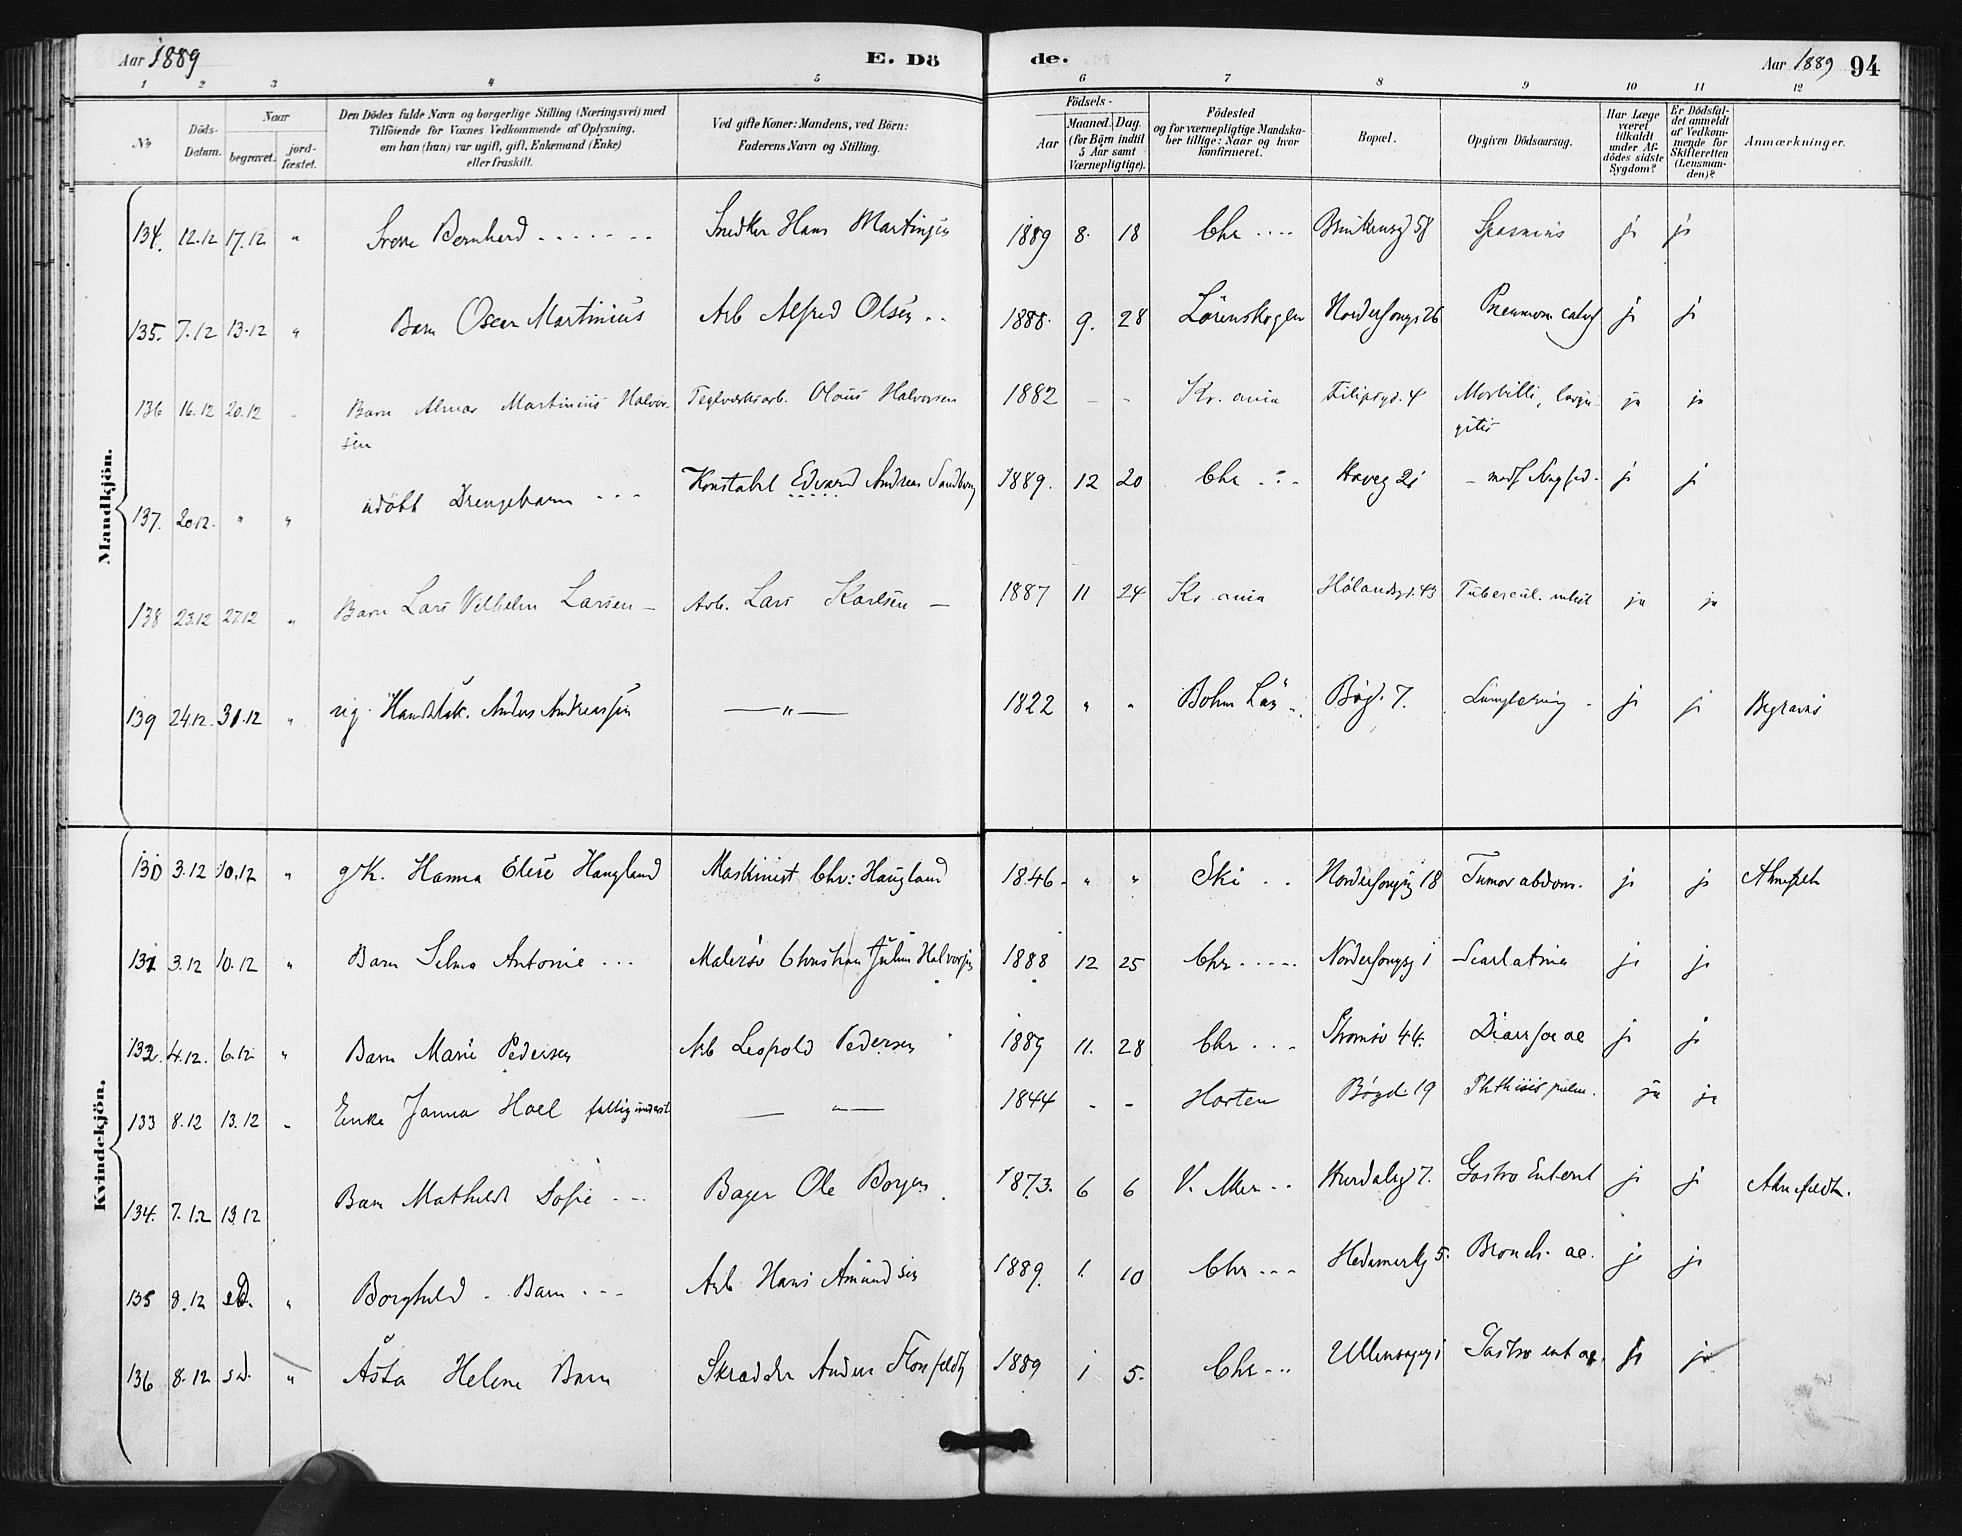 Aar 1889 E. Döde. Aar 1889 94
1 2 3 4 5 6 7 8 9 10 11 12
No
Döds-Datum.
Naar
begravet.
jordfæstet.
Den Dödes fulde Navn og borgerlige Stilling (Næringsvei) med
Tilföiende for Voxnes Vedkommende af Oplysning,
om han (hun) var ugift, gift, Enkemand (Enke)
eller fraskilt.
Ved gifte Koner: Mandens, ved Börn:
Faderens Navn og Stilling.
Födsels-
Aar
Maaned. Dag.
(for Börn indtil
5 Aar samt
Værnepligtige).
Födested
og for værnepligtige Mandska-
ber tillige: Naar og hvor
konfirmeret.
Bopæl.
Opgiven Dödsaarsag.
Har Læge
været
tilkaldt
under Af-
dödes sidste
Sygdom?
Er Dödsfal-
det anmeldt
af Vedkom-
mende for
Skifteretten
(Lensman-
den)?
Anmærkninger.
Mandkjön.
134. 12.12 17.12 " Bernhard Snedker Hans Martinsen 1889 8. 18 Chr 58 Spasmus ja ja
135. 7.12 13.12 " Barn Oscar Martinius Arb Alfred Olsen 1888. 9. 28 Lörenskogen 26 ja ja
136 16.12 20.12 - Barn Martinius Halvor- Teglverksarb. Olaus Halvorsen 1882 - - Kr.ania Filipsgd. 4 Morbilli,
sen
137. 20.12. " " Drengebarn Konstabel Edvard Andreas Sandberg 1889. 12 20 Chr ja ja
138 23.12 27.12 " Barn Lars Vilhelm Larsen - Arb. Lars Karlsen - 1887 11 24 Kr.ania Hölandsgd. 43 Tubercul. ja ja
139 24.12. 31.12 " Anders Andreassen — " — 1822 " " Bohus Län Bögd. 7. ja ja
Kvindekjön.
130 3.12 10.12 " g K. Hanna Elise Haugland Maskinist Chr: Haugland 1846 " " Ski 18 Tumor abdom. ja ja
131 3.12 10.12 " Barn Selma Antonie Christian Julius Halvorsen 1888 12 25 Chr 1 Scarlatina ja ja
132. 4.12. 6.12 " Barn Marie Pedersen Arb Leopold Pedersen 1889 11. 28 Chr Strömsv 44. Diarrhoe ac ja ja
133 8.12 13.12 " Enke Janna Hoel — " — 1844 - - Horten Bögd. 19 Phthisis pulm. ja ja
134. 7.12 13.12 Barn Mathilde Sofie Bager Ole Borgen 1873. 6 6 V. Aker Hurdalsgd 7. Gastro Enterit ja ja Ahnefeldt.
135 8.12 sd. " Borghild Barn Arb Hans Amundsen 1889. 1. 10 Chr Hedemarksg 5. Bronch. ac. ja ja
136 8.12 sd. " Åsta Helene Barn Skrædder Anders 1889 1 5. Chr 1 Gastro ent ac. ja ja